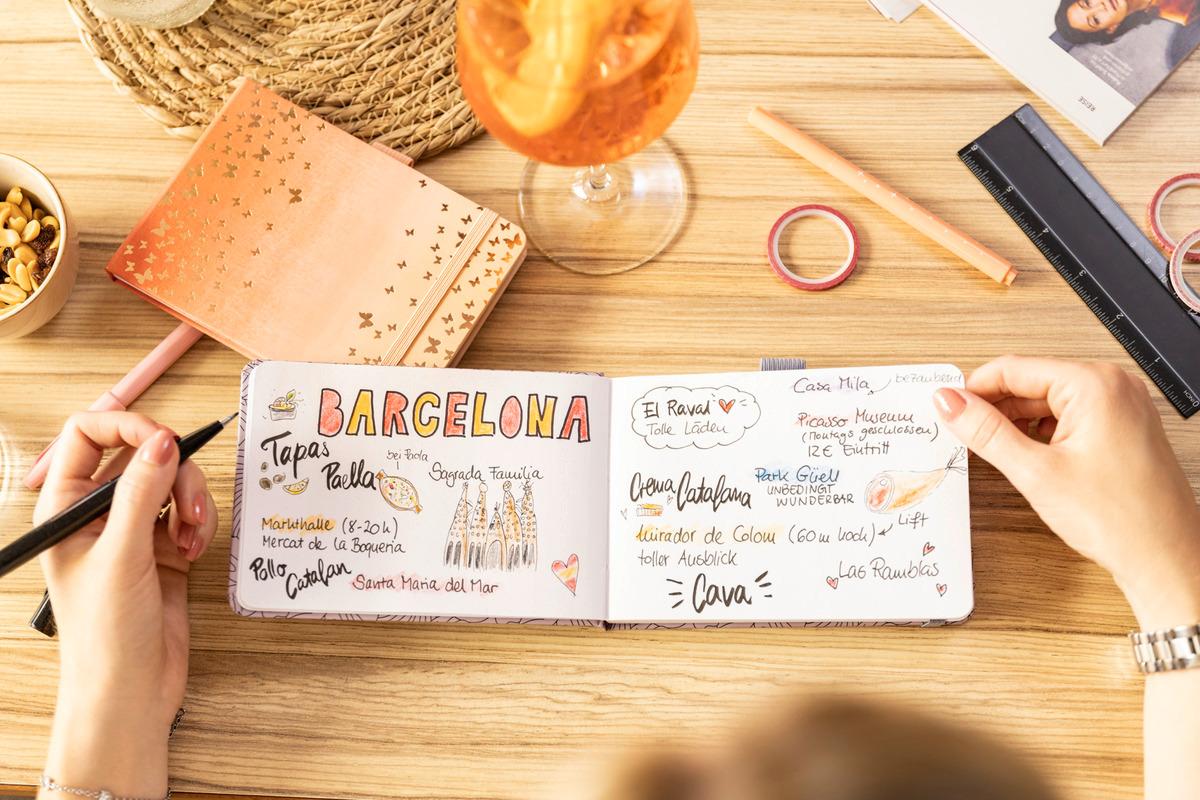 BARCELONA
Tapas
bei Paola
Paella
Sagrada Família
Markthalle (8-20h)
Mercat de la Boqueria
Pollo
Catalan
Santa Maria del Mar
El Raval
Tolle Läden
Casa Mila
bezaubernd
Picasso Museum
(Montags geschlossen)
12€ Eintritt
Crema Catalana
Park Güell
UNBEDINGT
WUNDERBAR
Mirador de Colom (60m hoch)
Lift
toller Ausblick
Cava
Las Ramblas
REISE
6
5
4
3
2
1